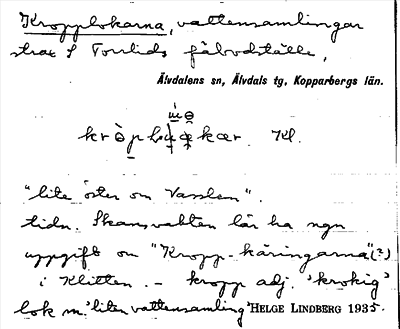 Kropplokarna, vattensamlingar
strax S Torrlids fäbodställe,
Älvdalens sn, Älvdals tg, Kopparbergs län.
Kl.
"lite öster om Vasslan".
tidn. Skansvakten lär ha ngn
uppgift om "Kropp-käringarna"(?)
i Klitten. - kropp adj. 'krokig'
lok m. 'liten vattensamling' HELGE LINDBERG 1935.